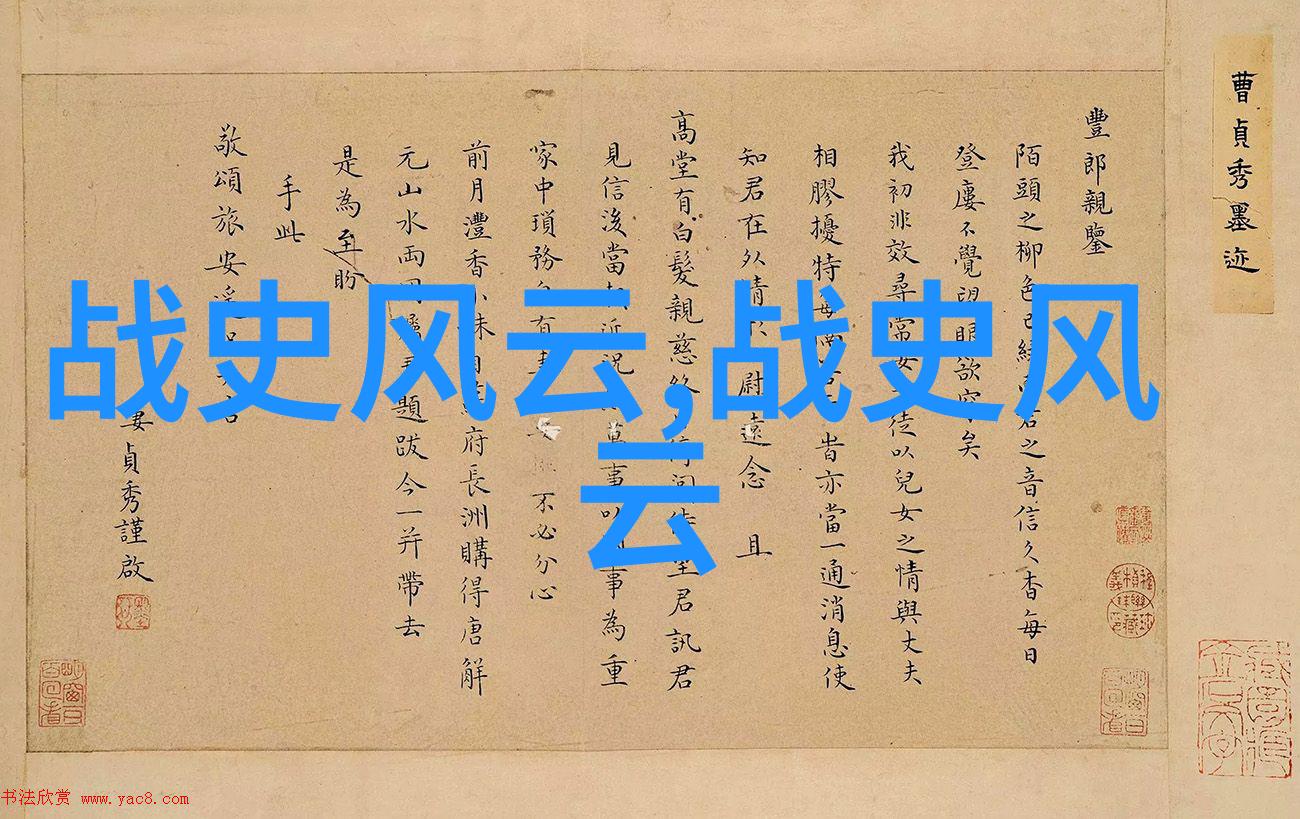 曹貞秀墨迹
豐郎親鑒
陌頭之柳色已綠君之音信久杳每日
登廔不覺望眼欲穿矣
我初非效尋常女徒以兒女之情與丈夫
相膠擾特每亦當一通消息使
知君在外情慰遠念 且
高堂有白髮親慈望君訊君
見信後當近況萬事以事為重
家中瑣務有不必分心
前月灃香小妹自府長洲購得唐解
元山水兩題跋今一并帶去
是為至盼
手此
敬頌旅安
妾貞秀謹啟
战史风云,战史风
云
书法欣赏 www.yac8.com